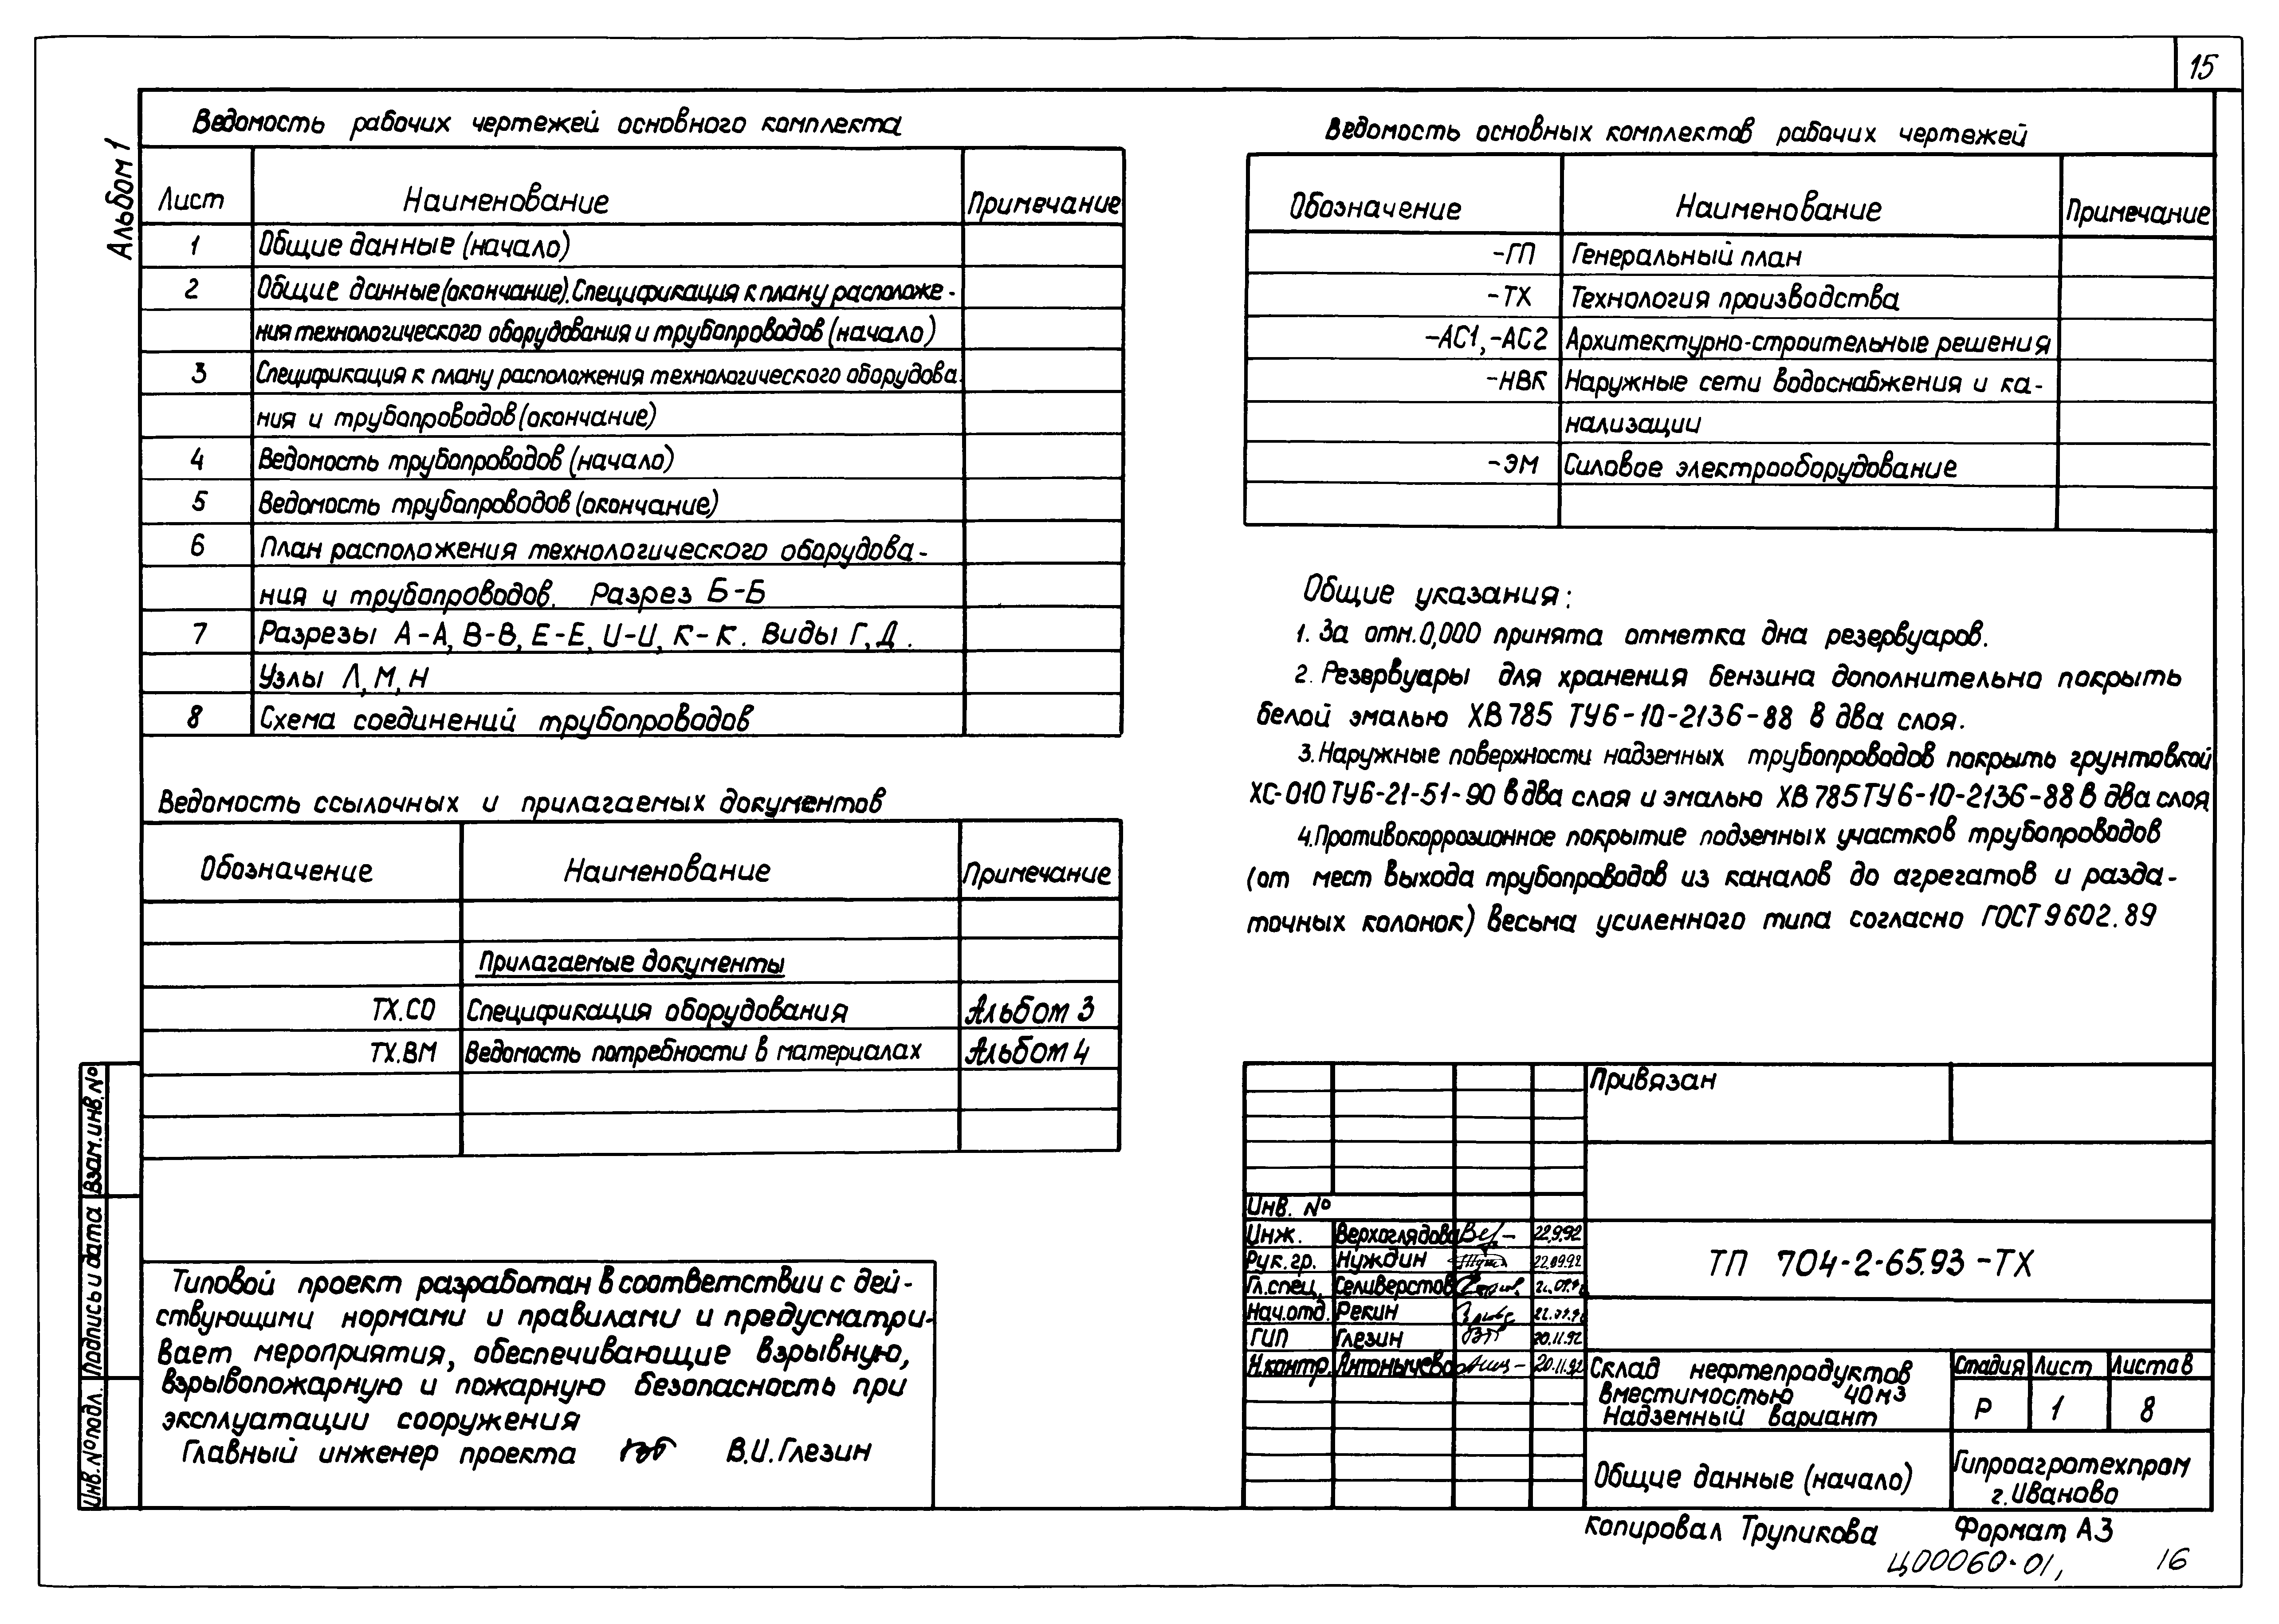 15
Альбом 1
Ведомость рабочих чертежей основного комплекта
Лист Наименование Примечание
1 Общие данные (начало)
2 Общие данные (окончание). Спецификация к плану расположе-
ния технологического оборудования и трубопроводов (начало)
3 Спецификация к плану расположения технологического оборудова
ния и трубопроводов (окончание)
4 Ведомость трубопроводов (начало)
5 Ведомость трубопроводов (окончание)
6 План расположения технологического оборудова-
ния и трубопроводов. Разрез Б-Б
7 Разрезы А-А, В-В, Е-Е, И-И, К-К. Виды Г, Д.
Узлы Л, М, Н
8 Схема соединений трубопроводов
Ведомость ссылочных и прилагаемых документов
Обозначение Наименование Примечание
Прилагаемые документы
ТХ.СО Спецификация оборудования Альбом 3
ТХ.ВМ Ведомость потребности в материалах Альбом 4
Типовой проект разработан в соответствии с дей-
ствующими нормами и правилами и предусматри-
вает мероприятия, обеспечивающие взрывную,
взрывопожарную и пожарную безопасность при
эксплуатации сооружения
Главный инженер проекта В.И. Глезин
Взам. инв. №
Подпись и дата
Инв. № подл.
Ведомость основных комплектов рабочих чертежей
Обозначение Наименование Примечание
-ГП Генеральный план
-ТХ Технология производства
-АС1, -АС2 Архитектурно-строительные решения
-НВК Наружные сети водоснабжения и ка-
нализации
-ЭМ Силовое электрооборудование
Общие указания:
1. За отн. 0,000 принята отметка дна резервуаров.
2. Резервуары для хранения бензина дополнительно покрыть
белой эмалью ХВ 785 ТУ6-10-2136-88 в два слоя.
3. Наружные поверхности надземных трубопроводов покрыть грунтовкой
ХС-010 ТУ6-21-51-90 в два слоя и эмалью ХВ 785 ТУ6-10-2136-88 в два слоя
4. Противокоррозионное покрытие подземных участков трубопроводов
(от мест выхода трубопроводов из каналов до агрегатов и разда-
точных колонок) весьма усиленного типа согласно ГОСТ 9602.89
Привязан
Инв. №
Инж. Верхоглядова 22.9.92
Рук. гр. Нуждин 22.09.92
Гл. спец. Селиверстов
Нач. отд. Рекин
ГИП Глезин 20.11.92
Н. контр. Антонычева 20.11.92
ТП 704-2-65.93 -ТХ
Склад нефтепродуктов
вместимостью 40м3
Надземный вариант
Стадия Лист Листов
Р 1 8
Общие данные (начало)
Гипроагротехпром
г. Иваново
копировал Трупикова Формат А3
Ц00060-01, 16